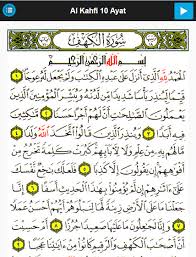 Al Kahfi 10 Ayat
سُورَةُ الْكَهْفِ
بِسْمِ اللَّهِ الرَّحْمَٰنِ الرَّحِيمِ
الْحَمْدُ لِلَّهِ الَّذِي أَنزَلَ عَلَىٰ عَبْدِهِ الْكِتَٰبَ وَلَمْ يَجْعَل لَّهُ عِوَجَا ١
قَيِّمًا لِّيُنذِرَ بَأْسًا شَدِيدًا مِّن لَّدُنْهُ وَيُبَشِّرَ الْمُؤْمِنِينَ الَّذِينَ
يَعْمَلُونَ الصَّٰلِحَٰتِ أَنَّ لَهُمْ أَجْرًا حَسَنًا ٢ مَّٰكِثِينَ
فِيهِ أَبَدًا ٣ وَيُنذِرَ الَّذِينَ قَالُوا اتَّخَذَ اللَّهُ وَلَدًا ٤
مَّا لَهُم بِهِ مِنْ عِلْمٍ وَلَا لِءَابَائِهِمْ كَبُرَتْ كَلِمَةً تَخْرُجُ مِنْ
أَفْوَٰهِهِمْ إِن يَقُولُونَ إِلَّا كَذِبًا ٥ فَلَعَلَّكَ بَٰخِعٌ نَّفْسَكَ
عَلَىٰ ءَاثَٰرِهِمْ إِن لَّمْ يُؤْمِنُوا بِهَٰذَا الْحَدِيثِ أَسَفًا ٦ إِنَّا
جَعَلْنَا مَا عَلَى الْأَرْضِ زِينَةً لَّهَا لِنَبْلُوَهُمْ أَيُّهُمْ أَحْسَنُ عَمَلًا
٧ وَإِنَّا لَجَٰعِلُونَ مَا عَلَيْهَا صَعِيدًا جُرُزًا ٨ أَمْ حَسِبْتَ
أَنَّ أَصْحَٰبَ الْكَهْفِ وَالرَّقِيمِ كَانُوا مِنْ ءَايَٰتِنَا عَجَبًا ٩